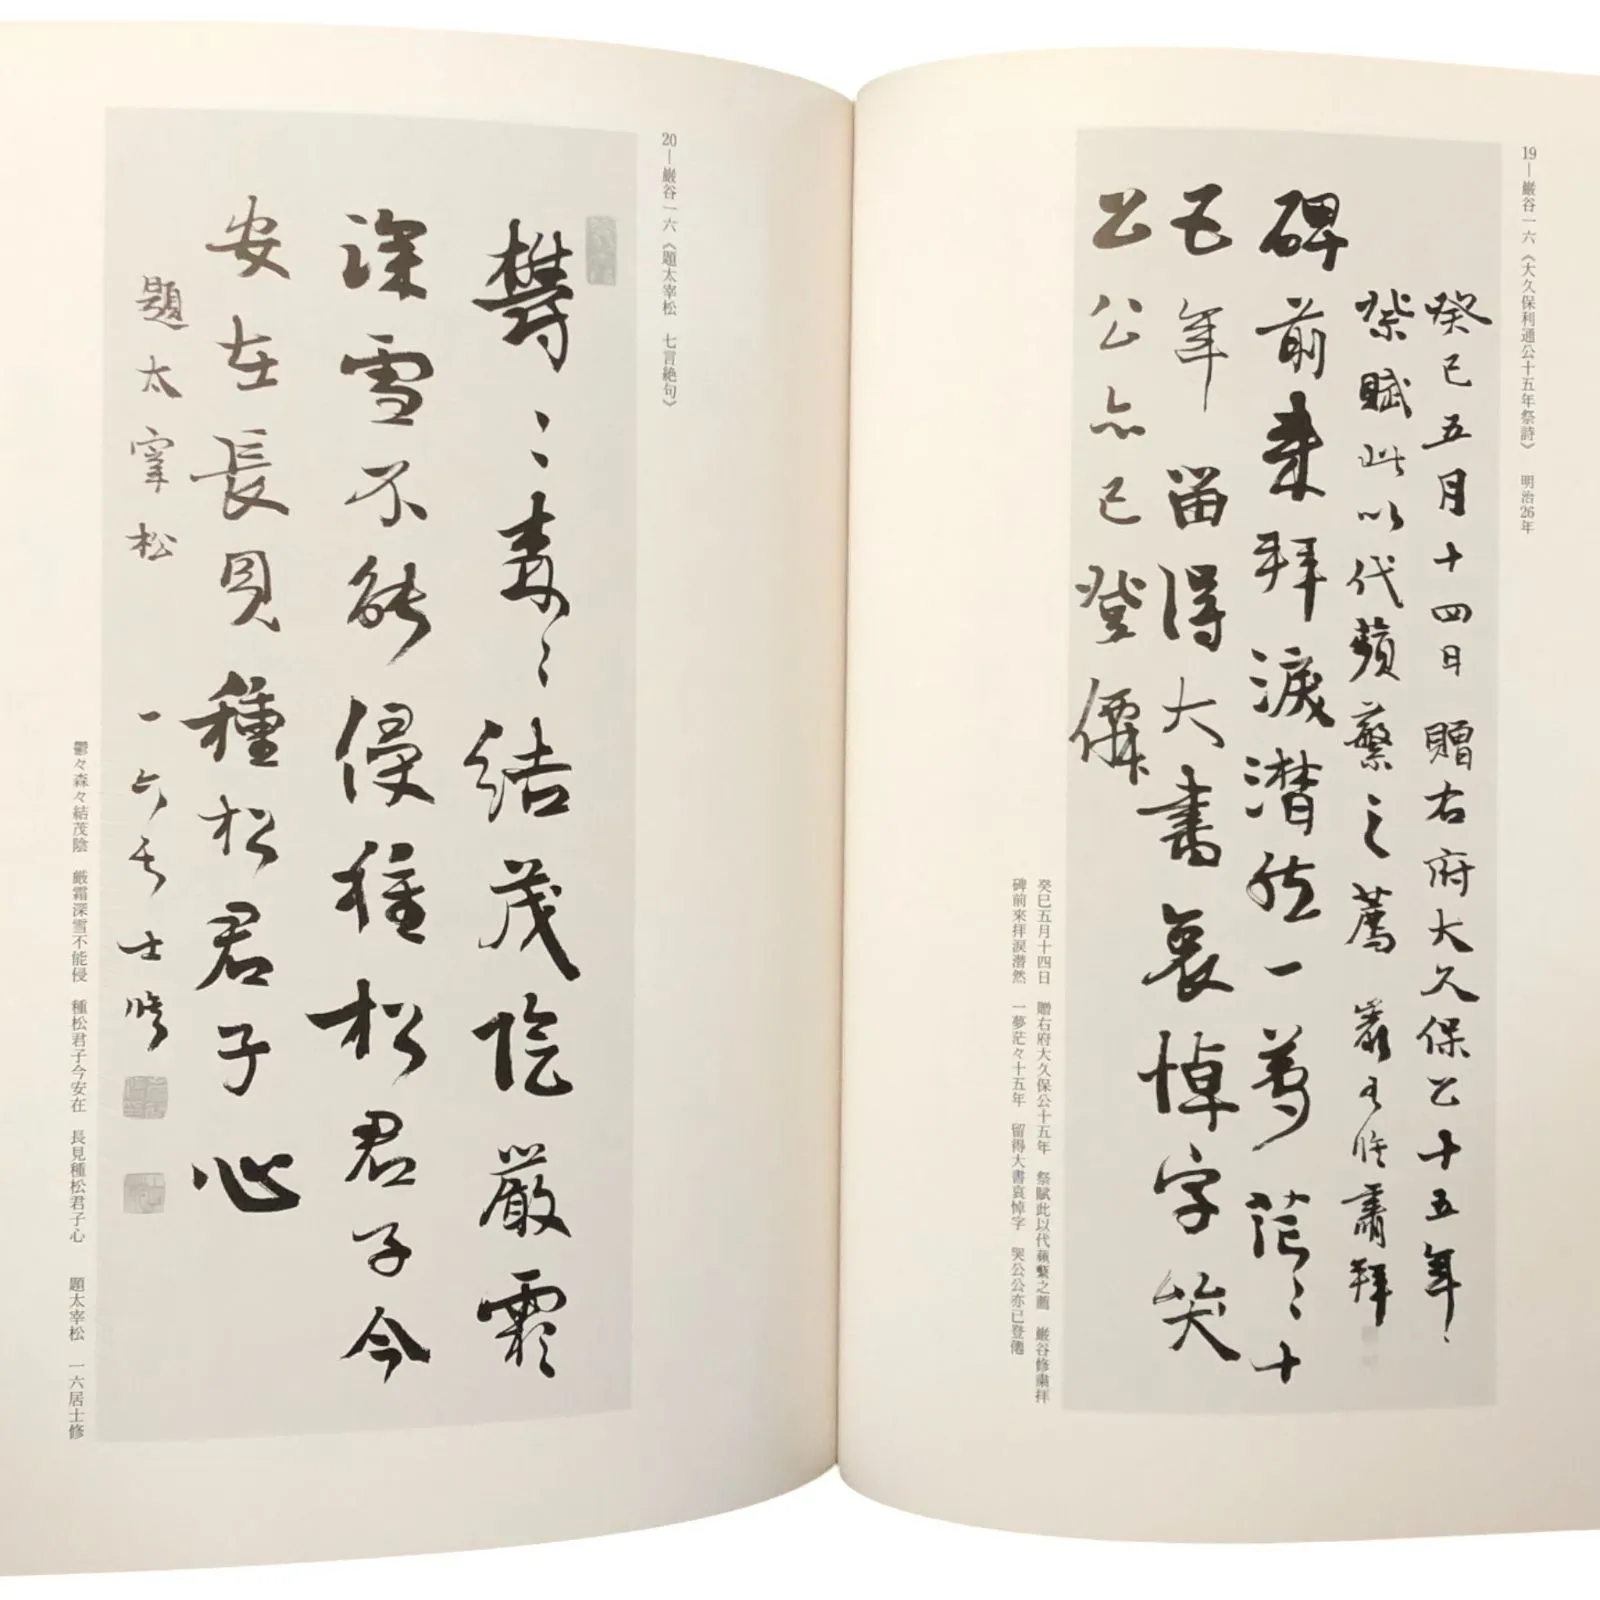 19—巌谷一六《大久保利通公十五年祭詩》　明治26年
癸巳五月十四日贈右府大久保公十五年
祭賦此以代蘋蘩之薦　巖谷修肅拜
碑前來拜淚潸然一夢茫〻十
五年留得大書哀悼字哭
公公亦已登僊
癸巳五月十四日　贈右府大久保公十五年　祭賦此以代蘋蘩之薦　巌谷修粛拝
碑前來拝涙潸然　一夢茫々十五年　留得大書哀悼字　哭公公亦已登僊
20—巌谷一六《題太宰松　七言絶句》
鬱〻森〻結茂陰嚴霜
深雪不能侵種松君子今
安在長見種松君子心
題太宰松　一六居士修
鬱々森々結茂陰　厳霜深雪不能侵　種松君子今安在　長見種松君子心　題太宰松　一六居士修